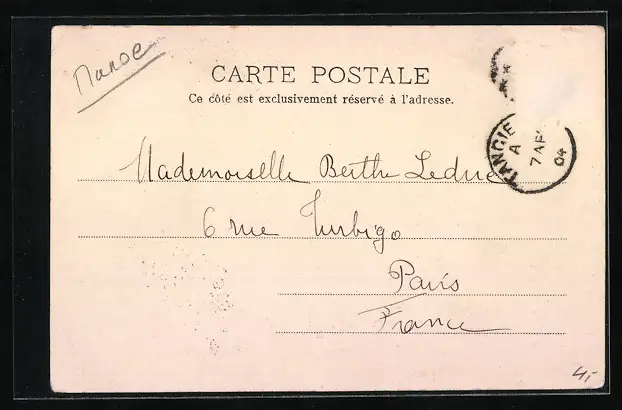 Maroc
CARTE POSTALE
Ce côté est exclusivement réservé à l'adresse.
TANGIE
A
7 AP
04
Mademoiselle Berthe Leduc
6 rue Turbigo
Paris
France